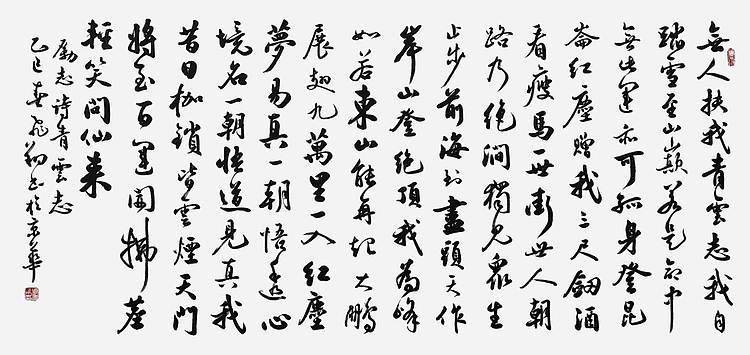 無人扶我青雲志我自
踏雪至山巔若是命中
無此運亦可孤身登昆
崙紅塵贈我三尺劍酒
看瘦馬一世衝世人朝
路乃絕澗獨見眾生
止步前海到盡頭天作
岸山登絕頂我為峰
如若東山能再起大鵬
展翅九萬里一入紅塵
夢易真一朝悟透心
境名一朝悟道見真我
昔日枷鎖皆雲煙天門
將至百運開拂塵
輕笑問仙來
勵志詩青雲志
乙巳春飛翔書於京華